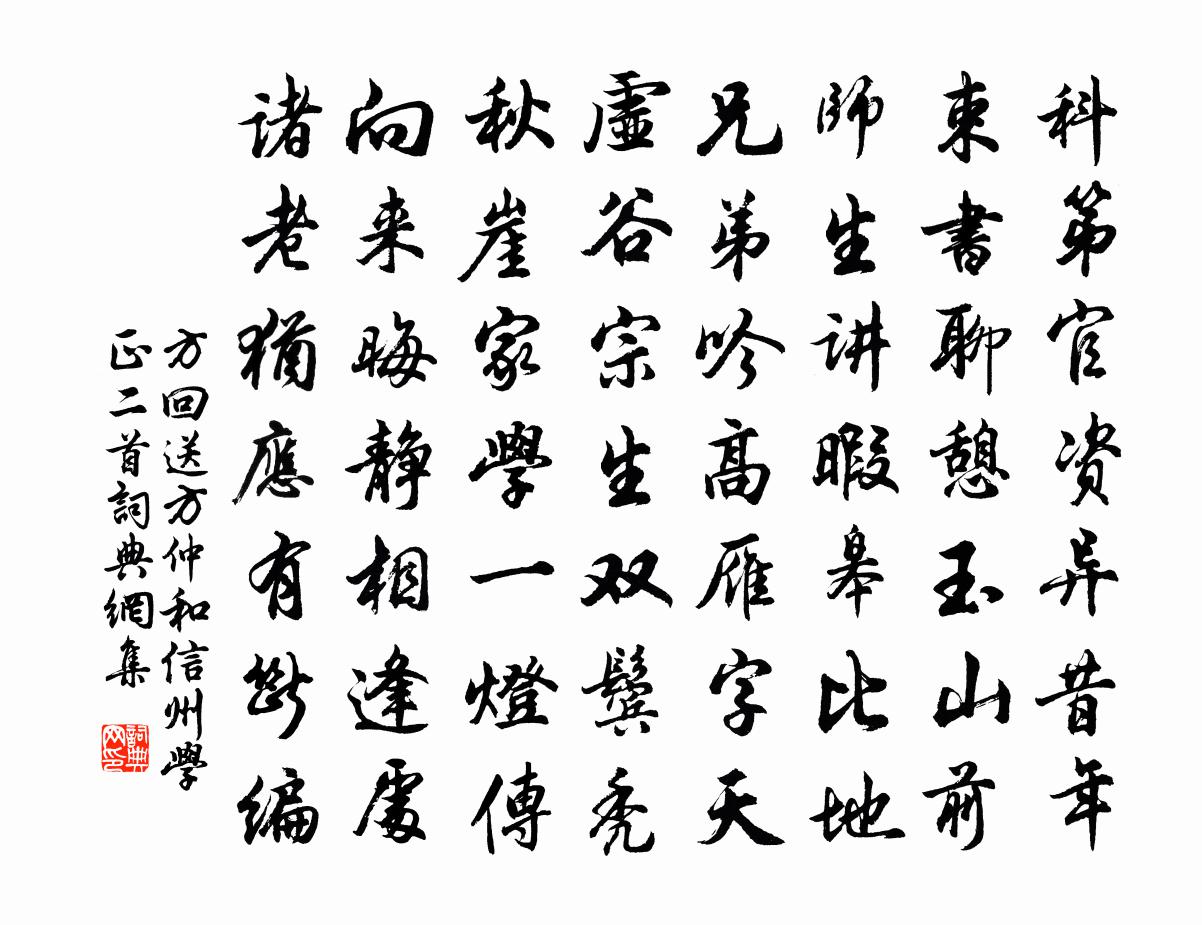 科第官资异昔年
束書聊憩玉山前
師生讲暇皋比地
兄弟吟高雁字天
虚谷宗生双鬓秃
秋崖家學一燈傳
向来晦静相逢處
诸老猶應有断编
方回送方仲和信州學
正二首詞典網集
詞典网印